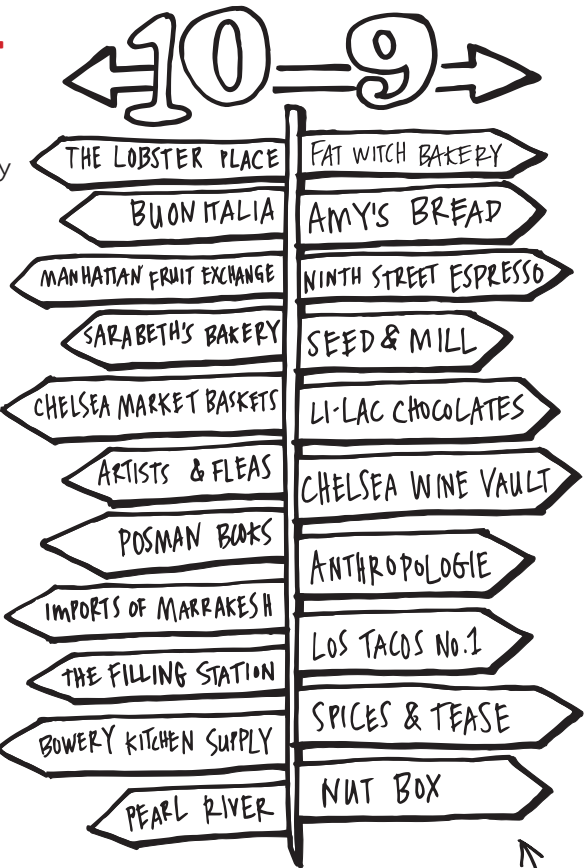 10 9
THE LOBSTER PLACE
BUON ITALIA
MANHATTAN FRUIT EXCHANGE
SARABETH'S BAKERY
CHELSEA MARKET BASKETS
ARTISTS & FLEAS
POSMAN BOOKS
IMPORTS OF MARRAKESH
THE FILLING STATION
BOWERY KITCHEN SUPPLY
PEARL RIVER
FAT WITCH BAKERY
AMY'S BREAD
NINTH STREET ESPRESSO
SEED & MILL
LI-LAC CHOCOLATES
CHELSEA WINE VAULT
ANTHROPOLOGIE
LOS TACOS No.1
SPICES & TEASE
NUT BOX